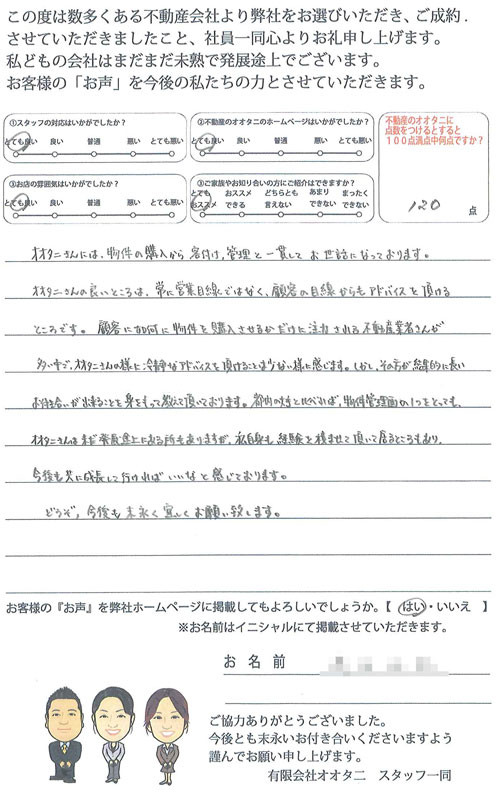 この度は数多くある不動産会社より弊社をお選びいただき、ご成約.
させていただきましたこと、社員一同心よりお礼申し上げます。
私どもの会社はまだまだ未熟で発展途上でございます。
お客様の「お声」を今後の私たちの力とさせていただきます。
①スタッフの対応はいかがでしたか?
とても良い 良い 普通 悪い とても悪い
②不動産のオオタニのホームページはいかがでしたか?
とても良い 良い 普通 悪い とても悪い
不動産のオオタニに
点数をつけるとすると
100点満点中何点ですか?
120 点
③お店の雰囲気はいかがでしたか?
とても良い 良い 普通 悪い とても悪い
⑤ご家族やお知り合いの方にご紹介はできますか?
とても おススメ どちらとも あまり まったく
おススメ できる 言えない できない できない
オオタニさんには、物件の購入から客付け、管理と一貫してお世話になっております。
オオタニさんの良いところは、常に営業目線ではなく、顧客の目線からもアドバイスを頂ける
ところです。顧客に如何に物件を購入させるかだけに注力される不動産業者さんが
多い中で、オオタニさんの様に冷静なアドバイスを頂けることは少ない様に感じます。しかし、その方が結果的に長い
お付き合いが出来ることを身をもって教えて頂いております。都内の対と比べれば、物件管理面の1つをとっても、
オオタニさんはまだ発展途上にある所もありますが、私自身も経験を積ませて頂いて居るところもあり、
今後も共に成長して行ければいいなと感じております。
どうぞ、今後も末永く宜しくお願い致します。
お客様の『お声』を弊社ホームページに掲載してもよろしいでしょうか。【 はい・いいえ 】
※お名前はイニシャルにて掲載させていただきます。
お名前
ご協力ありがとうございました。
今後とも末永いお付き合いくださいますよう
謹んでお願い申し上げます。
有限会社オオタニ スタッフ一同